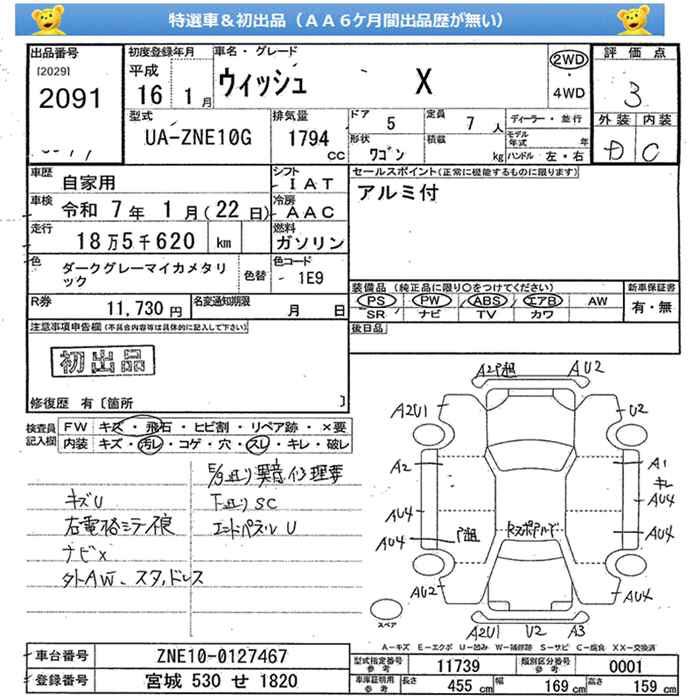 特選車＆初出品（ＡＡ６ケ月間出品歴が無い）
出品番号
[2029]
2091
初度登録年月
平成
16 1月
車名・グレード
ウィッシュ X
2WD
・
4WD
評価点
3
外装 内装
D C
型式
UA-ZNE10G
排気量
1794
CC
ドア
5
定員
7人
形状
ワゴン
積載
kg
ディーラー・並行
モデル年式 年
ハンドル 左・右
車歴
自家用
シフト
IAT
車検
令和 7年 1月(22日)
冷房
AAC
走行
18万5千620 km
燃料
ガソリン
色
ダークグレーマイカメタリック
色替
色コード
1E9
R券
11,730円
名変通知期限
月 日
セールスポイント(正常に機能するものに限ります)
アルミ付
装備品(純正品に限り○をつけてください)
PS PW ABS エアB AW
SR ナビ TV カワ
新車保証書
有・無
後日品
注意事項申告欄(不具合内容等は具体的に記入して下さい)
初出品
修復歴 有〔箇所 〕
検査員記入欄
FW キズ・飛石・ヒビ割・リペア跡・×要
内装 キズ・汚レ・コゲ・穴・スレ・キレ・破レ
E/g廻り異音 修理要
キズU
下廻りSC
右電格ミラー
エンドパネルU
ナビx
外AW、スタッドレス
A2P祖 AU2
A2U1 U2
A2 A1
キレ
AU4 AU4
AU4 AU4
AU2 AU4
A2U1 U2 A3
スペア
A-キズ E-エクボ U-凹み W-補修跡 S-サビ C-腐食 XX-交換済
車台番号
ZNE10-0127467
登録番号
宮城 530 せ 1820
型式指定番号 参考
11739
類別区分番号 参考
0001
車庫証明用 参考
長さ 455 cm
幅 169 cm
高さ 159 cm